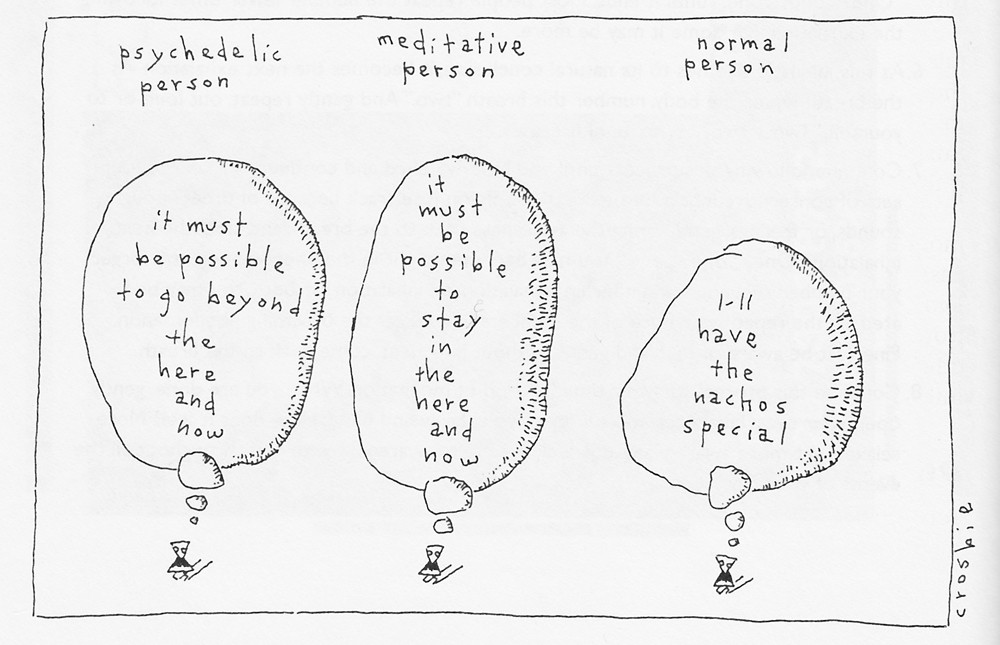 psychedelic
person
it must
be possible
to go beyond
the
here
and
now
meditative
person
it
must
be
possible
to
stay
in
the
here
and
now
normal
person
I-ll
have
the
nachos
special